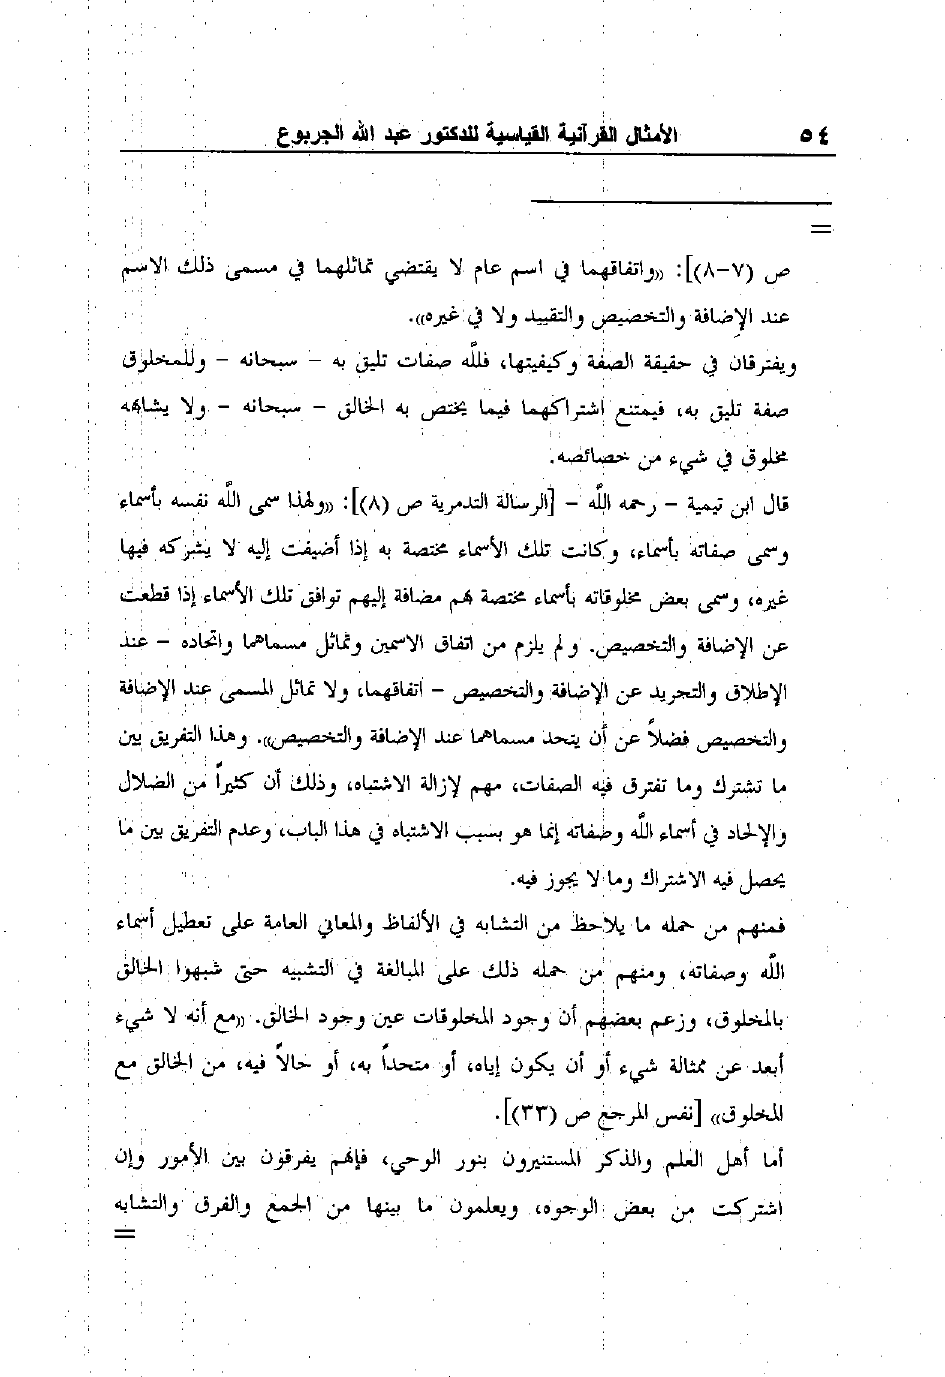 ٥٤ الأمثال القرآنية القياسية للدكتور عبد الله الجربوع
=
ص (٧-٨)]: «واتفاقهما في اسم عام لا يقتضي تماثلهما في مسمى ذلك الاسم
عند الإضافة والتخصيص والتقييد ولا في غيره».
ويفترقان في حقيقة الصفة وكيفيتها، فللّه صفات تليق به - سبحانه - وللمخلوق
صفة تليق به، فيمتنع اشتراكهما فيما يختص به الخالق - سبحانه - ولا يشابهه
مخلوق في شيء من خصائصه.
قال ابن تيمية - رحمه اللّه - [الرسالة التدمرية ص (٨)]: «ولهذا سمى اللّه نفسه بأسماء
وسمى صفاته بأسماء، وكانت تلك الأسماء مختصة به إذا أضيفت إليه لا يشركه فيها
غيره، وسمى بعض مخلوقاته بأسماء مختصة بهم مضافة إليهم توافق تلك الأسماء إذا قطعت
عن الإضافة والتخصيص. ولم يلزم من اتفاق الاسمين وتماثل مسماهما واتحاده - عند
الإطلاق والتجريد عن الإضافة والتخصيص - اتفاقهما، ولا تماثل المسمى عند الإضافة
والتخصيص فضلاً عن أن يتحد مسماهما عند الإضافة والتخصيص». وهذا التفريق بين
ما تشترك وما تفترق فيه الصفات، مهم لإزالة الاشتباه، وذلك أن كثيراً من الضلال
والإلحاد في أسماء اللّه وصفاته إنما هو بسبب الاشتباه في هذا الباب، وعدم التفريق بين ما
يحصل فيه الاشتراك وما لا يجوز فيه.
فمنهم من حمله ما يلاحظ من التشابه في الألفاظ والمعاني العامة على تعطيل أسماء
اللّه وصفاته، ومنهم من حمله ذلك على المبالغة في التشبيه حتى شبهوا الخالق
بالمخلوق، وزعم بعضهم أن وجود المخلوقات عين وجود الخالق. «مع أنه لا شيء
أبعد عن مماثلة شيء أو أن يكون إياه، أو متحداً به، أو حالاً فيه، من الخالق مع
المخلوق» [نفس المرجع ص (٣٣)].
أما أهل العلم والذكر المستنيرون بنور الوحي، فإنهم يفرقون بين الأمور وإن
اشتركت من بعض الوجوه، ويعلمون ما بينها من الجمع والفرق والتشابه
=